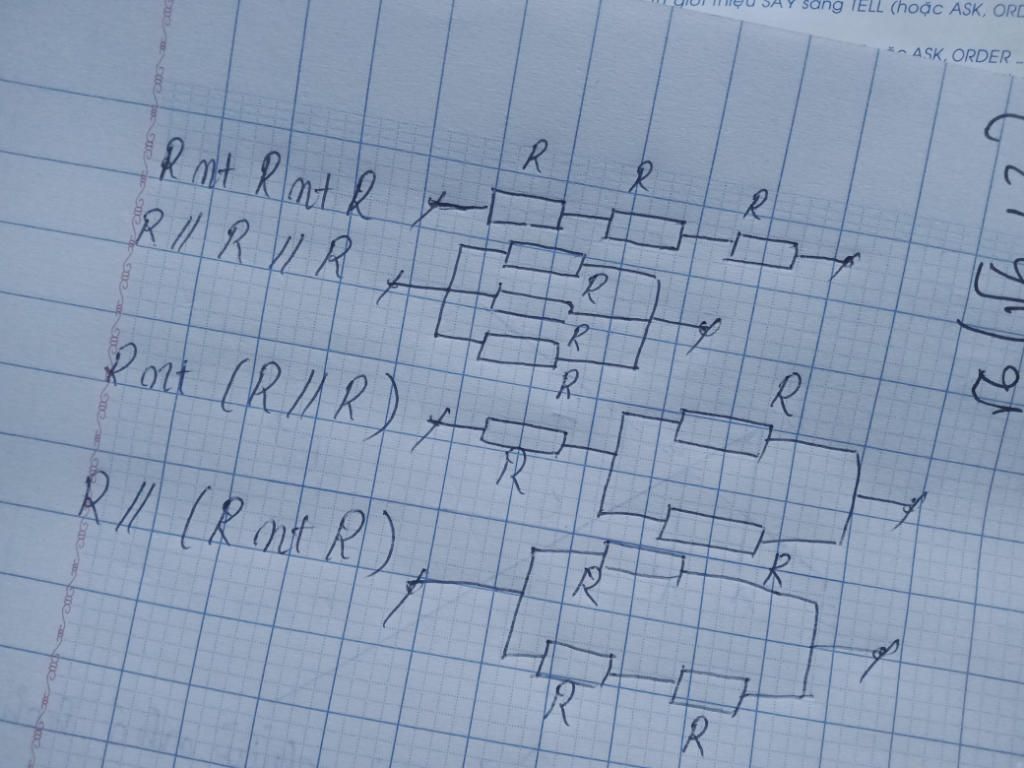 giới thiệu SAY sang TELL (hoặc ASK, ORD
ASK, ORDER
R nt R nt R
R R R
R // R // R
R
R
R
R nt (R // R)
R
R
R
R // (R nt R)
R
R
R